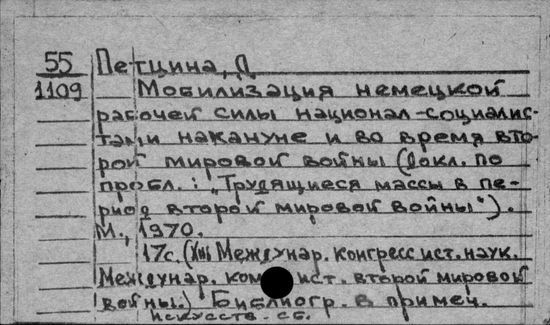 55 Петцина, Д
1109 Мобилизация немецкой
рабочей силы национал-социалис-
тами накануне и во время вто-
рой мировой войны (Докл. по
пробл.: "Трудящиеся массы в пе-
риод второй мировой войны").
М., 1970.
17с. (XIII Междунар. конгресс ист. наук.
Междунар. ком ист. второй мировой
войны.) Библиогр. в примеч.
искусств. сб.